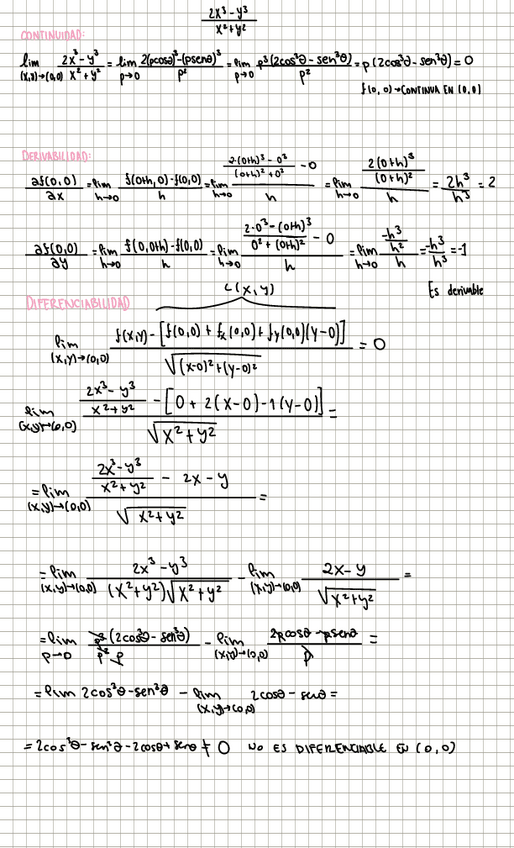 2x³-y³ / x²+y²
CONTINUIDAD:
lím (x,y)→(0,0) 2x³-y³ / x²+y² = lím p→0 2(pcosθ)³-(psenθ)³ / p² = lím p→0 p³(2cos³θ-sen³θ) / p² = p(2cos³θ-sen³θ) = 0
f(0,0)→CONTINUA EN (0,0)
DERIVABILIDAD:
∂f(0,0)/∂x = lím h→0 f(0+h,0)-f(0,0) / h = lím h→0 (2(0+h)³-0³ / (0+h)²+0² - 0) / h = lím h→0 (2(0+h)³ / (0+h)²) / h = 2h³/h³ = 2
∂f(0,0)/∂y = lím h→0 f(0,0+h)-f(0,0) / h = lím h→0 (2·0³-(0+h)³ / 0²+(0+h)² - 0) / h = lím h→0 (-h³/h²) / h = -h³/h³ = -1
Es derivable
L(x,y)
DIFERENCIABILIDAD
lím (x,y)→(0,0) f(x,y)-[f(0,0)+fx(0,0)+fy(0,0)(y-0)] / √(x-0)²+(y-0)² = 0
lím (x,y)→(0,0) (2x³-y³ / x²+y² - [0+2(x-0)-1(y-0)]) / √x²+y² =
= lím (x,y)→(0,0) (2x³-y³ / x²+y² - 2x-y) / √x²+y² =
= lím (x,y)→(0,0) 2x³-y³ / (x²+y²)√x²+y² - lím (x,y)→(0,0) 2x-y / √x²+y² =
= lím p→0 p³(2cos³θ-sen³θ) / p² p - lím (x,y)→(0,0) 2pcosθ-psenθ / p =
= lím 2cos³θ-sen³θ - lím (x,y)→(0,0) 2cosθ-senθ =
= 2cos³θ-sen³θ-2cosθ+senθ ≠ 0 NO ES DIFERENCIABLE EN (0,0)